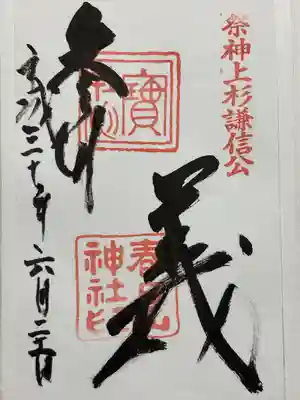 祭神上杉謙信公
義
春日山神社印
参拝
平成三十年六月